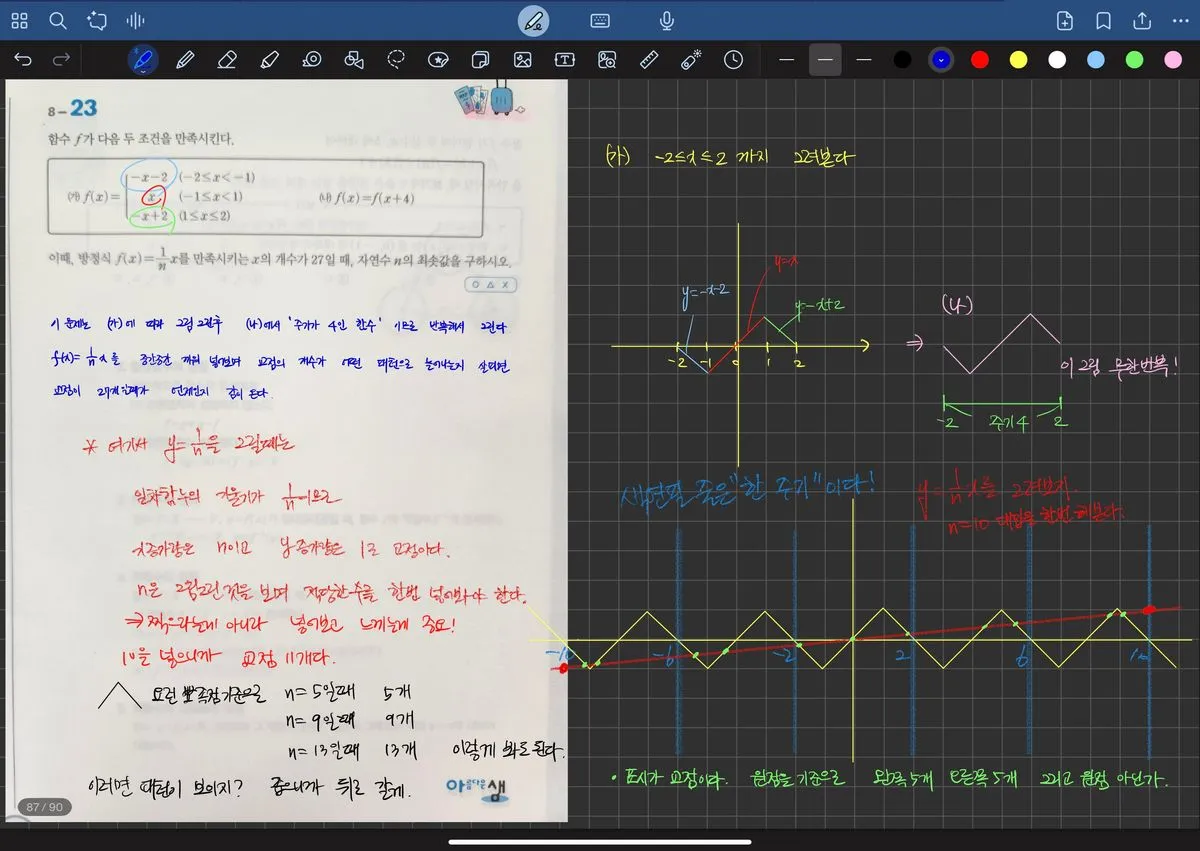 8-23
함수 f가 다음 두 조건을 만족시킨다.
-x-2 (-2≤x<-1)
(가) f(x)= x (-1≤x<1) (나) f(x)=f(x+4)
-x+2 (1≤x≤2)
이때, 방정식 f(x)=1/n x를 만족시키는 x의 개수가 27일 때, 자연수 n의 최솟값을 구하시오.
○ △ ×
이 문제는 (가)에 따라 그림 그린후 (나)에서 '주기가 4인 함수' 이므로 반복해서 그린다
f(x)=1/n x를 중간중간 끼워 넣어보며 교점의 개수가 어떤 패턴으로 늘어나는지 살피면
교점이 27개일때가 언제인지 감이 온다.
* 여기서 y=1/n을 그릴때는
일차함수의 기울기가 1/n이므로
x증가량은 n이고 y증가량은 1로 고정이다.
n은 그림그린 것을 보며 적당한수를 한번 넣어봐야 한다.
⇒ 찍으라는게 아니라 넣어보고 느끼는게 중요!
10을 넣으니까 교점 11개다.
요런 뾰족점기준으로 n=5일때 5개
n=9일때 9개
n=13일때 13개 이렇게 봐도 된다.
이러면 패턴이 보이지? 좁으니까 뒤로 갈게.
아름다운샘
87 / 90
(가) -2≤x≤2 까지 그려본다
y=-x-2
y=x
y=-x+2
-2 -1 0 1 2
⇒
(나)
이 그림 무한반복!
-2 주기4 2
색연필 줄은 "한 주기"이다!
y=1/n x를 그려보자.
n=10 대입을 한번 해본다.
-10 -6 -2 2 6 10
• 표시가 교점이다. 원점을 기준으로 왼쪽 5개 오른쪽 5개 그리고 원점 아닌가.